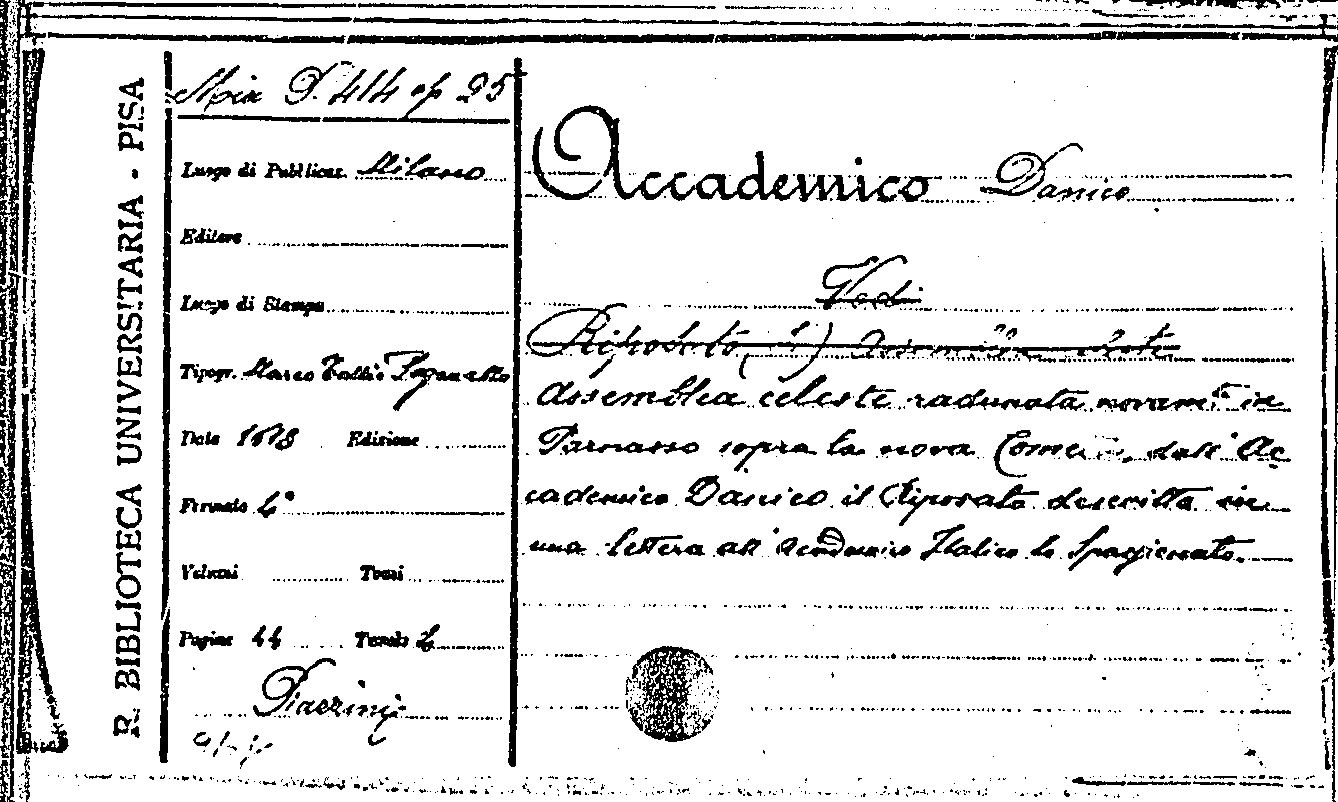 R. BIBLIOTECA UNIVERSITARIA - PISA
Misc D. 414 op 25
Luogo di Pubblicaz. Milano
Editore
Luogo di Stampa
Tipogr. Marco Tullio Paganello
Data 1618 Edizione
Formato 4°
Volumi Tomi
Pagine 44 Tavole 2
Piazzini
Accademico Danico
Vedi
Riposato, il)
Assemblea celeste radunata novam.te in
Parnasso sopra la nova dall' Ac
cademico Danico il Riposato descritta in
una lettera all' Academico Italico lo Spagienato.